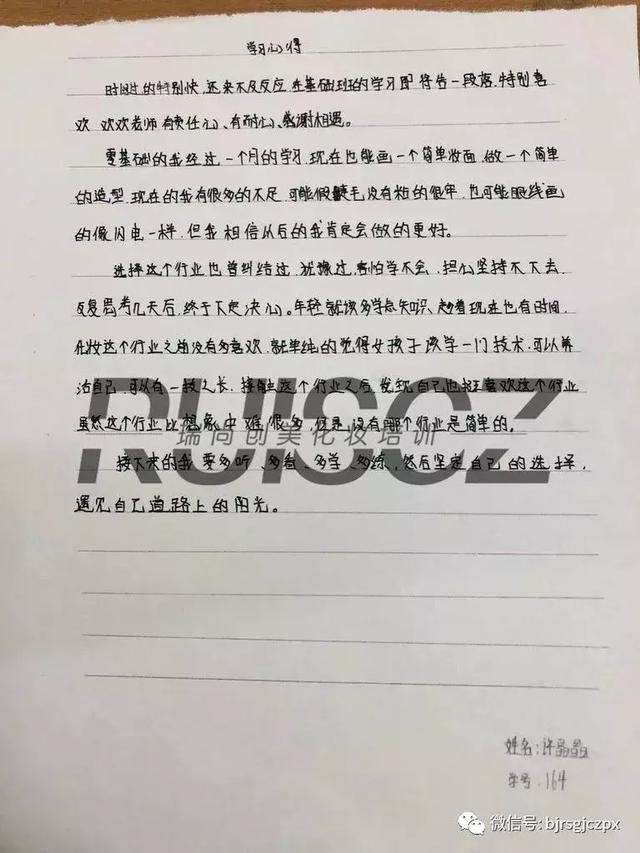 学习心得
时间过的特别快,还来不及反应,在基础班的学习即将告一段落,特别喜
欢 欢欢老师 有责任心、有耐心、感谢相遇。
零基础的我经过一个月的学习,现在也能画一个简单妆面,做一个简单
的造型,现在的我有很多的不足,可能假睫毛没有粘的很牢,也可能眼线画
的像闪电一样,但我相信以后的我肯定会做的更好。
选择这个行业也曾纠结过,犹豫过,害怕学不会,担心坚持不下去,
反复思考几天后,终于下定决心。年轻就该多学点知识、趁着现在也有时间,
化妆这个行业之前没有多喜欢,就单纯的觉得女孩子该学一门技术,可以养
活自己,可以有一技之长,接触这个行业之后,发现自己也挺喜欢这个行业
虽然这个行业比想象中难很多,但是没有哪个行业是简单的。
RUISCZ
瑞尚创美化妆培训
接下来的我要多听、多看、多学、多练,然后坚定自己的选择,
遇见自己道路上的阳光。
姓名:许晶晶
学号:164
微信号: bjrsgjczpx